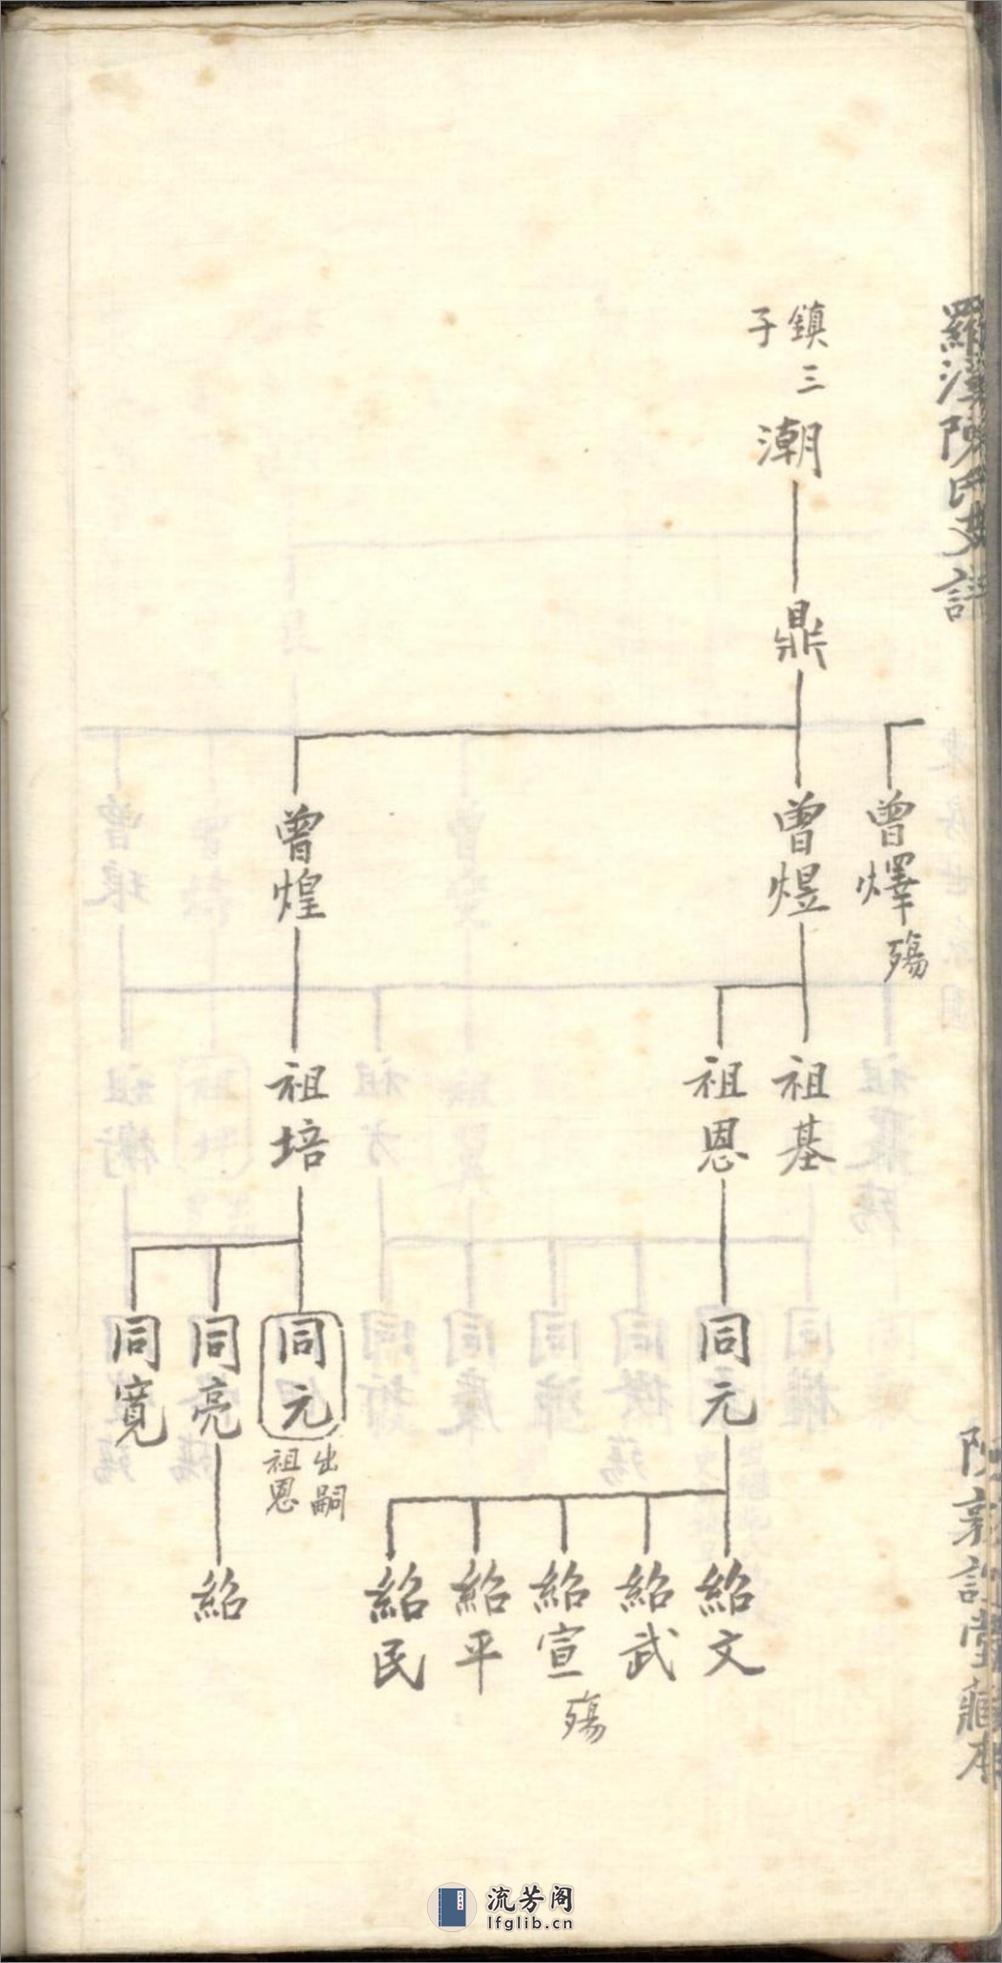 羅溪陳氏支譜
陳敦訓堂藏本
鎮三
子
潮
鼎
曾燡
殤
曾煜
曾煌
祖基
祖恩
祖培
同元
同元
出嗣
祖恩
同亮
同寬
紹文
紹武
紹宣
殤
紹平
紹民
紹
流芳阁
lfglib.cn